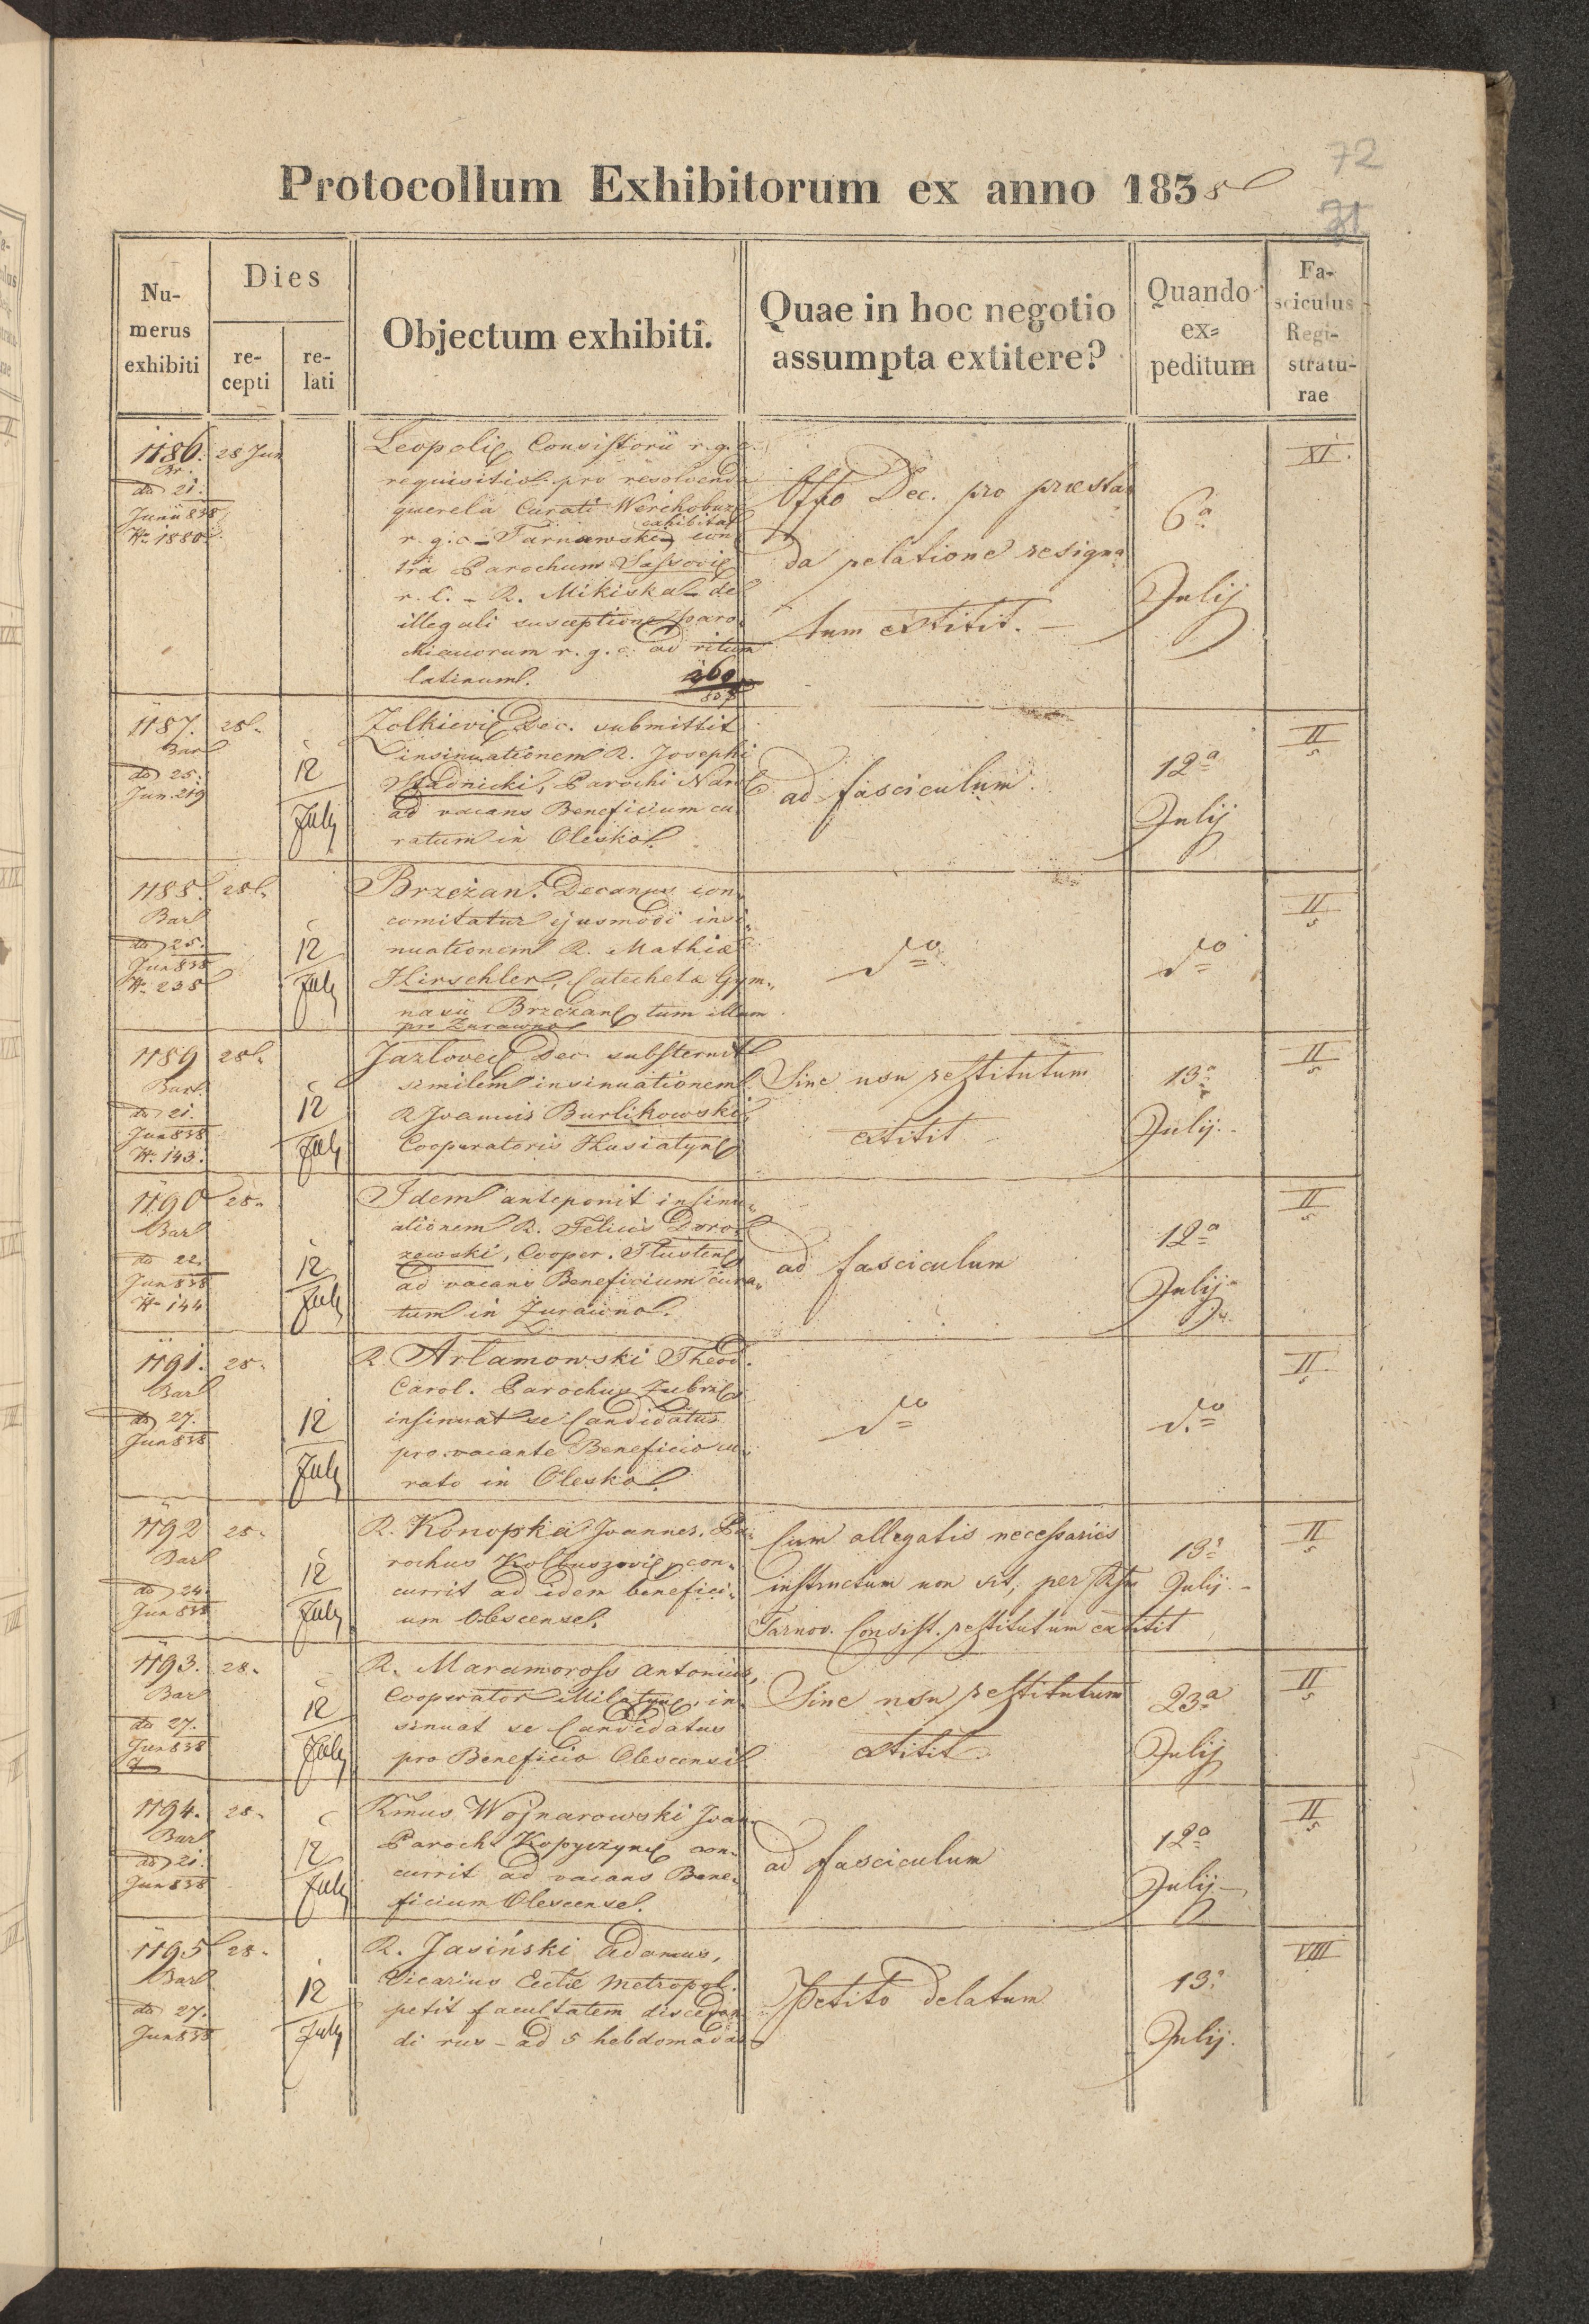 72
31
Protocollum Exhibitorum ex anno 1838
Numerus exhibiti
Dies
recepti
relati
Objectum exhibiti.
Quae in hoc negotio assumpta extitere?
Quando ex=peditum
Fasciculus Registraturae
1186.
Br.
dto 21.
Junii 838
N. 1880
28 Jun
Leopolie Consistorii r. g. c.
requisitio pro resolvenda
querela Curati Werchobuz
exhibita
r. g. c. Tarnawski con
tra Parochum Sassovie
r. l. R. Mikiska de
illegali susceptione paro
chianorum r. g. c. ad ritum
latinum.
Offo Dec. pro præstan
da relatione resigna
tum extitit.
6a
Julij
XI.
1187.
Bar
dto 25.
Jun. 219
28.
12
July
Zolkievie Dec. submittit
insinuationem R. Josephi
Stadnicki, Parochi Narol
ad vacans Beneficium cu
ratum in Olesko.
ad fasciculum
12a
Julij
II
5
1188.
Bar
dto 25.
Jun 838
N. 235
28.
12
July
Brzeżan. Decanus con
comitatur ejusmodi insi
nuationem R. Mathiæ
Hirschler, Catecheta Gym
nasii Brzeżan tum illum
pro Zurawno
dto
dto
II
5
1189
Bar
dto 21.
Jun 838
N. 143.
28.
12
July
Jazlovec Dec. substernit
similem insinuationem
R Joannis Burlikowski,
Cooperatoris Husiatyn
Sine usu restitutum
extitit
13a
Julij.
II
5
1190
Bar
dto 22.
Jun 838
N. 144
28.
12
July
Idem anteponit insinu
ationem R. Felicis Doro
zewski, Cooper. Tlusten
ad vacans Beneficium cura
tum in Zurawno.
ad fasciculum
12a
Julij
II
5
1191.
Bar
dto 27.
Jun 838
28.
12
July
R. Artamowski Theod.
Carol. Parochus Zubrz
insinuat se Candidatus
pro vacante Beneficio cu
rato in Olesko.
dto
dto
II
5
1192
Bar
dto 24.
Jun 838
28.
12
July
R. Konopka Joannes, Pa
rochus Kolbuszovie, con
currit ad idem benefici
um Olescense.
Cum allegatis necessariis
instructum non sit, per
Tarnov. Consist. restitutum extitit
13a
Julij.
II
5
1193.
Bar
dto 27.
Jun 838
28.
12
July
R. Maramoross Antonius,
Cooperator Milatyn, in
sinuat se Candidatus
pro Beneficio Olescensi.
Sine usu restitutum
extitit.
23a
Julij
II
5
1194.
Bar
dto 21.
Jun 838
28.
12
July
Rmus Wojnarowski Joan
Paroch Kopyczyn con
currit ad vacans Bene
ficium Olescense.
ad fasciculum
12a
Julij
II
5
1195
Bar
dto 27.
Jun 838
28.
12
July
R. Jasiński Adamus,
Vicarius Ecclæ Metropol.
petit facultatem disceden
di rus ad 5 hebdomadas
Petito delatum
13a
Julij.
VIII